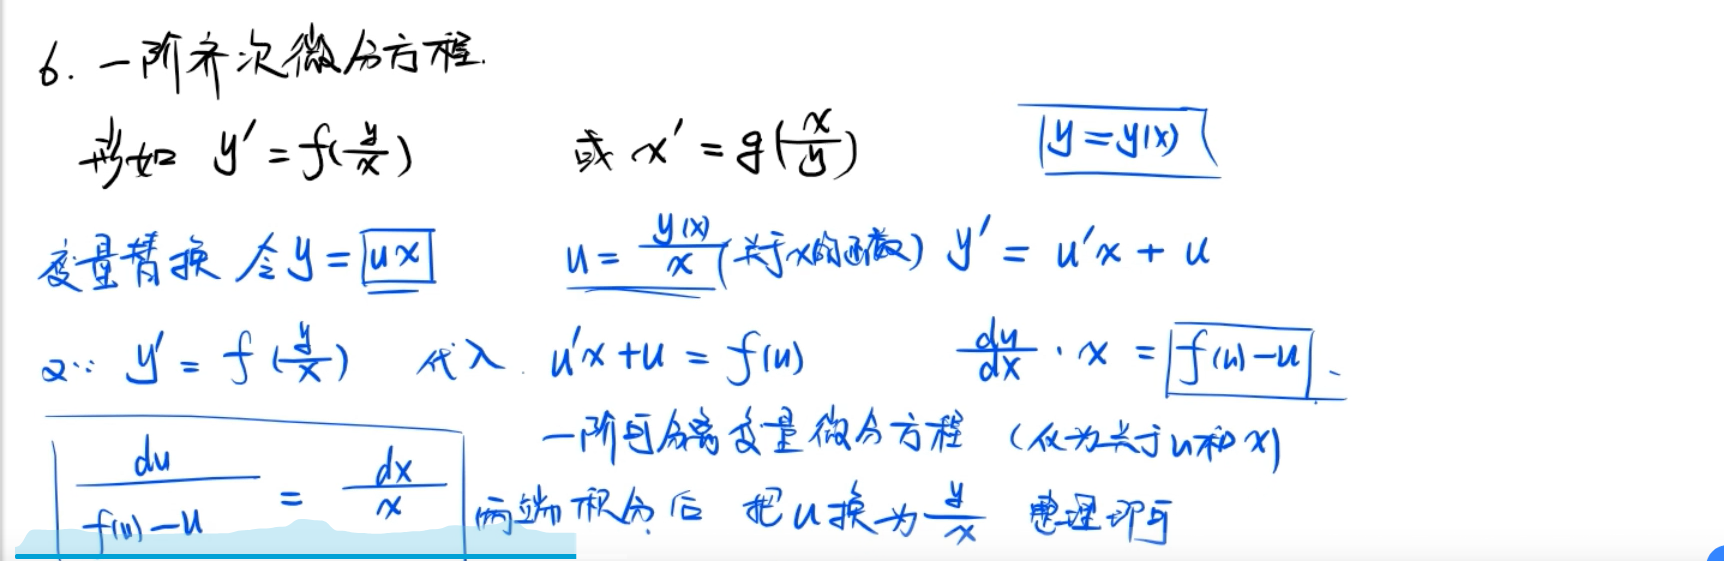 6. 一阶齐次微分方程.
形如 y' = f(y/x) 或 x' = g(x/y) y = y(x)
变量替换 令 y = ux u = y(x)/x (关于x的函数) y' = u'x + u
又∵ y' = f(y/x) 代入. u'x + u = f(u) du/dx · x = f(u) - u.
一阶可分离变量微分方程 (仅为关于u和x)
du/(f(u) - u) = dx/x 两端积分后 把u换为 y/x 整理即可